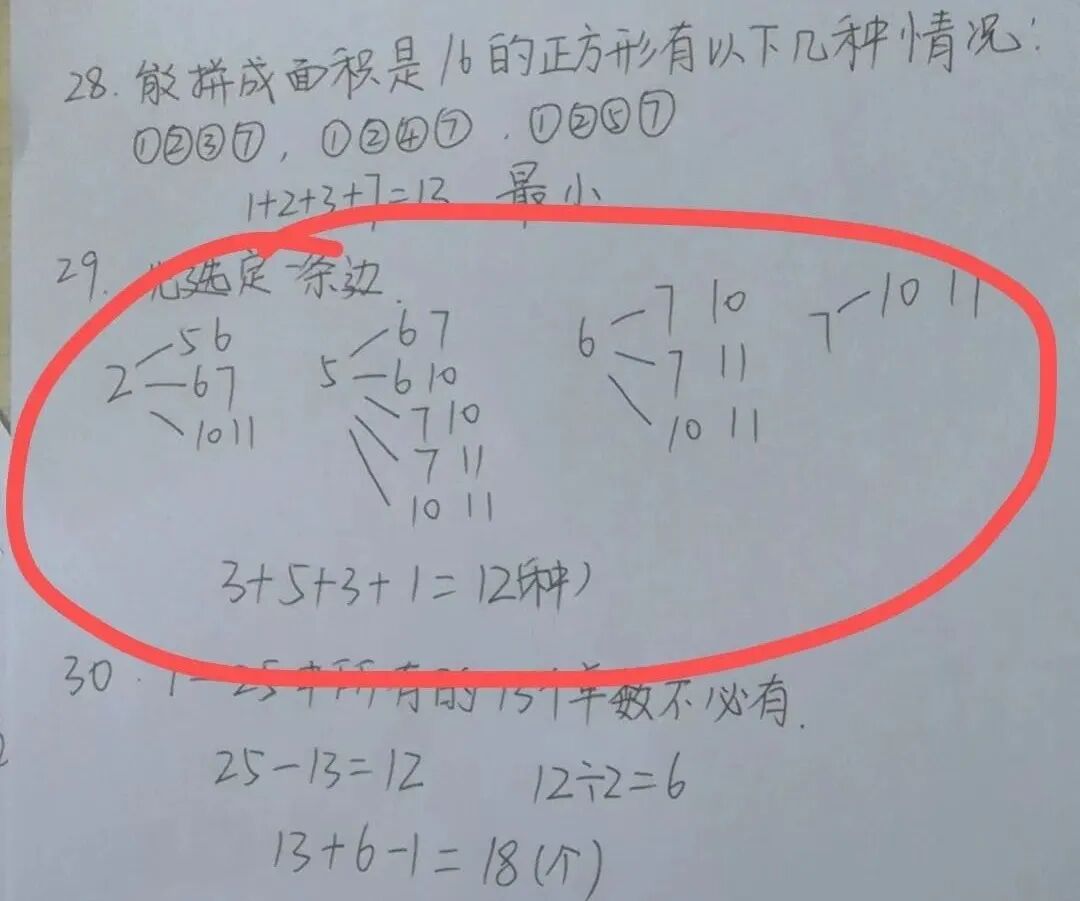 28. 能拼成面积是16的正方形有以下几种情况:
①②③⑦, ①②④⑦. ①②⑤⑦
1+2+3+7=13 最小
29. 先选定一条边.
2 5 6
6 7
10 11
5 6 7
6 10
7 10
7 11
10 11
6 7 10
7 11
10 11
7 10 11
3+5+3+1=12(种)
30. 1-25中所有的13个单数不必有.
25-13=12 12÷2=6
13+6-1=18(个)